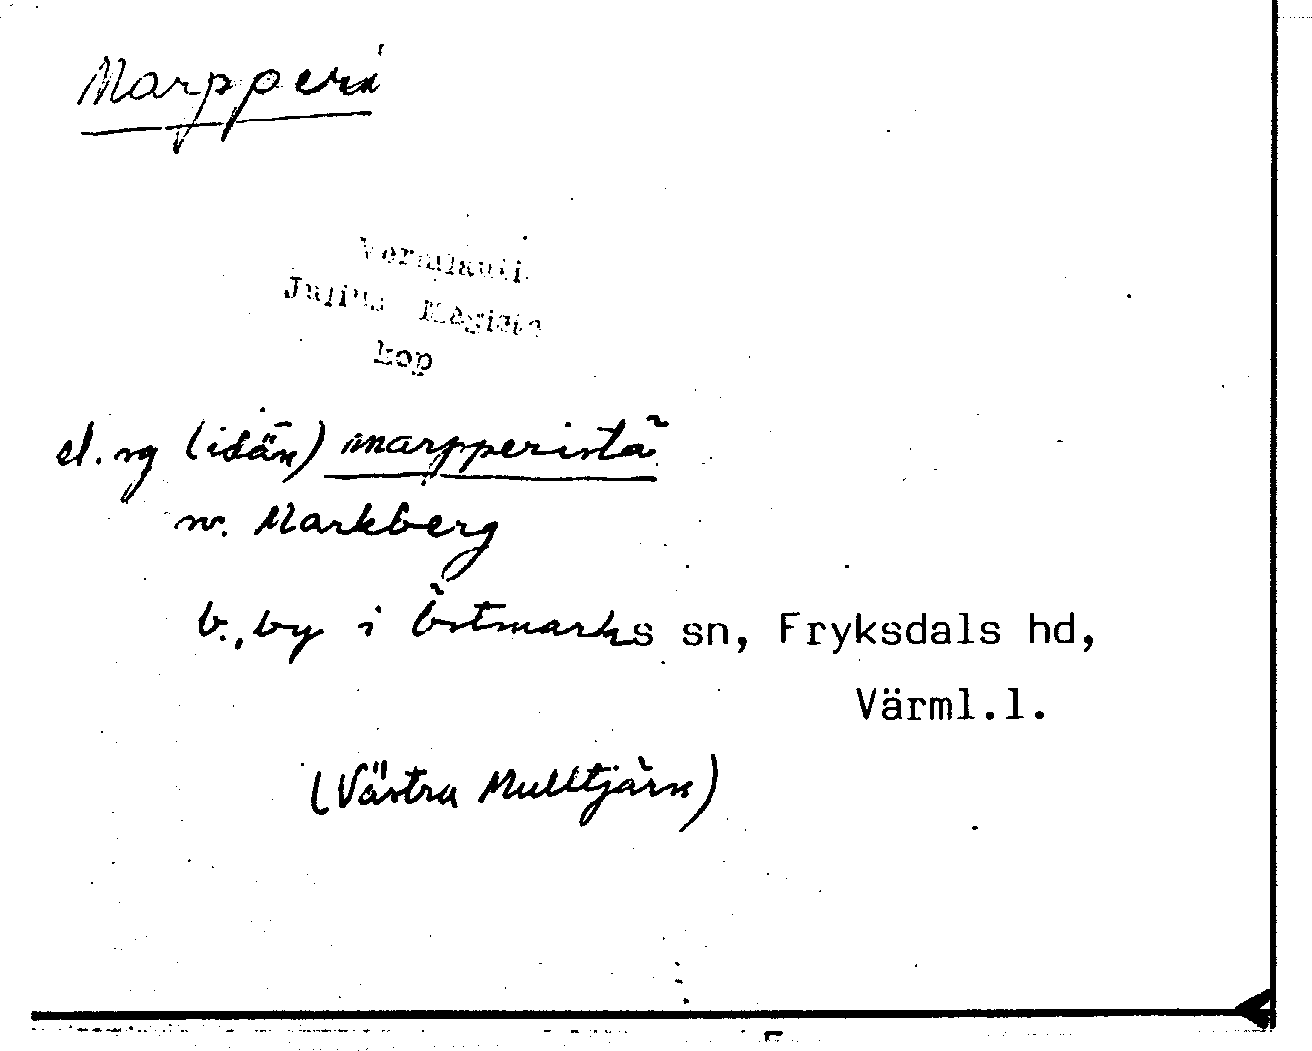 Marpperi
Vermlanti
Julius Mägiste
kop
el. sg (idän) marpperistã
r. Markberg
b., by i Östmarks sn, Fryksdals hd,
Värml.l.
(Västra Mulltjärn)